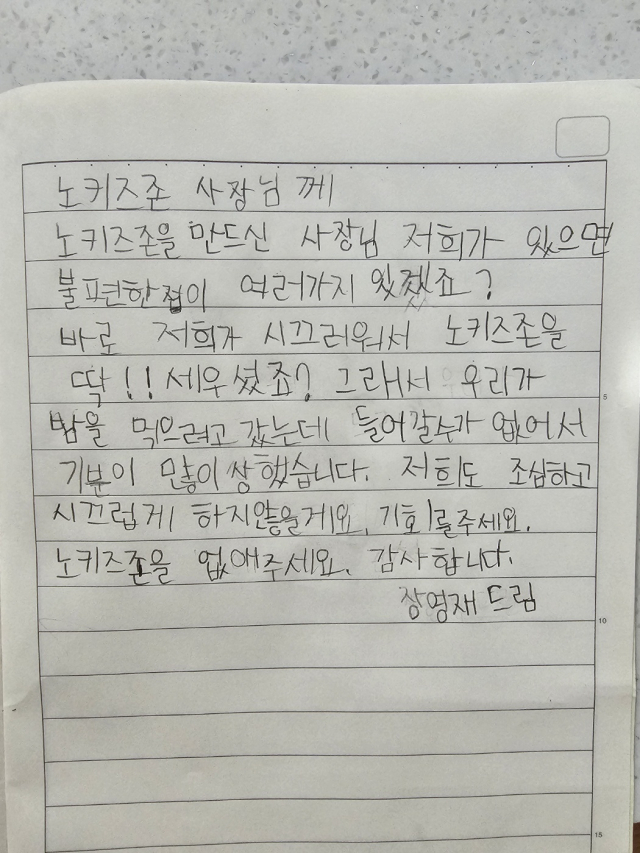 노키즈존 사장님께
노키즈존을 만드신 사장님 저희가 있으면
불편한점이 여러가지 있겠죠?
바로 저희가 시끄러워서 노키즈존을
딱!! 세우셨죠? 그래서 우리가
밥을 먹으려고 갔는데 들어갈수가 없어서
기분이 많이 상했습니다. 저희도 조심하고
시끄럽게 하지않을게요. 기회를주세요.
노키즈존을 없애주세요. 감사합니다.
장영재 드림
5
10
15